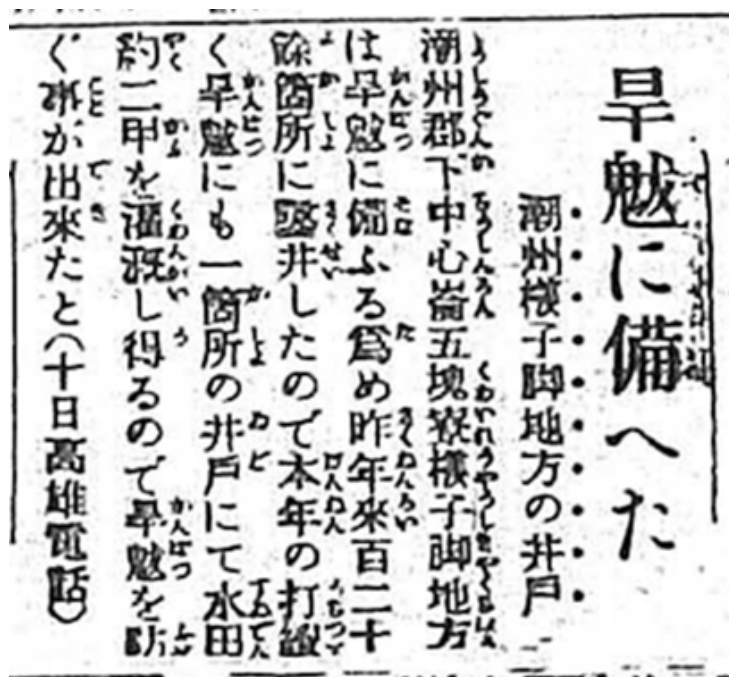 旱魃に備へた
潮州檨子脚地方の井戸
潮州郡下中心崙五塊寮檨子脚地方
は旱魃に備ふる爲め昨年來百二十
餘箇所に鑿井したので本年の打續
く旱魃にも一箇所の井戸にて水田
約二甲を灌漑し得るので旱魃を防
ぐ事が出來たと(十日高雄電話)